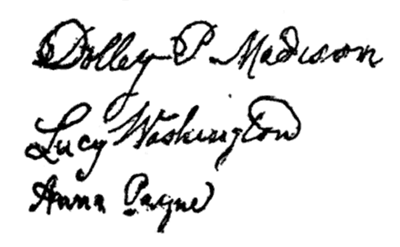 Dolley P. Madison
Lucy Washington
Anna Payne